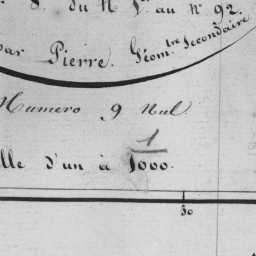 S. du N 1er au N° 92.
par Pierre. Géomtre Secondaire
Numero 9 Nul
1
lle d'un à 1000.
50